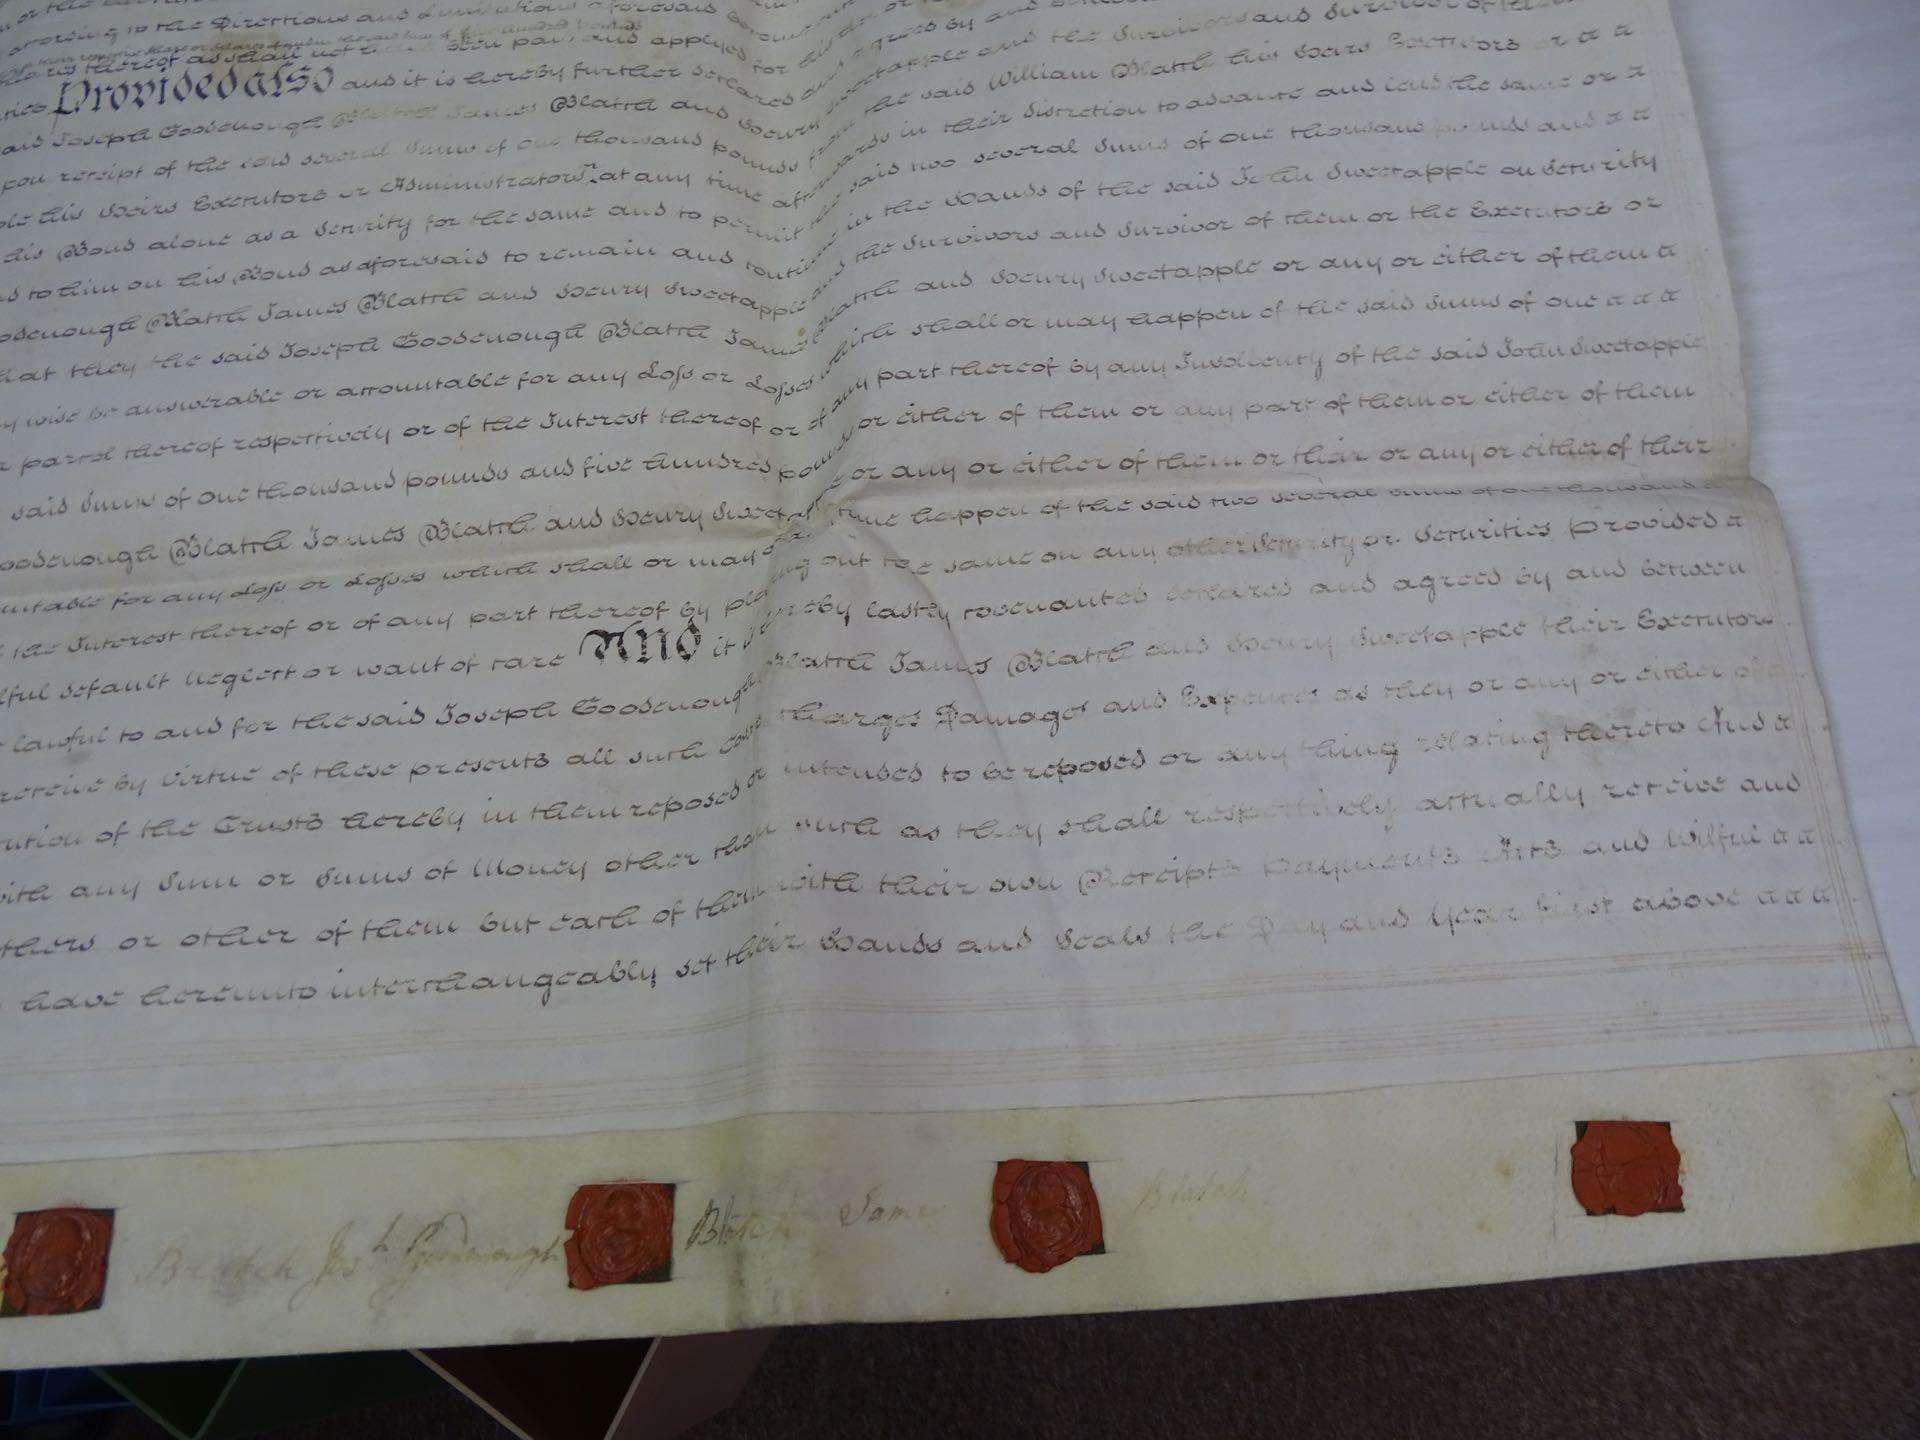 according to the Directions and Limitations aforesaid
thereof as shall not been paid and applyed for his
Provided also and it is hereby further declared and agreed by and between
said Joseph Goodenough Blatch James Blatch and Henry Sweetapple and the Survivors and Survivor of them
upon receipt of the said several Sums of one thousand pounds from the said William Blatch his Heirs Executors or a a
his Heirs Executors or Administrators at any time afterwards in their discretion to advance and lend the same or a
his Bond alone as a Security for the same and to permit the said two several Sums of one thousand pounds and a a
to him on his Bond as aforesaid to remain and continue in the Hands of the said John Sweetapple on Security
Goodenough Blatch James Blatch and Henry Sweetapple and the Survivors and Survivor of them or the Executors or
that they the said Joseph Goodenough Blatch James Blatch and Henry Sweetapple or any or either of them a
wise be answerable or accountable for any Loss or Losses which shall or may happen of the said Sums of one a a a
parcel thereof respectively or of the Interest thereof or of any part thereof by any Insolvency of the said John Sweetapple
said Sums of one thousand pounds and five hundred pounds or either of them or any part of them or either of them
Goodenough Blatch James Blatch and Henry Sweetapple or any or either of them or their or any or either of their
for any Loss or Losses which shall or may at any time happen of the said two several Sums of one thousand a
the Interest thereof or of any part thereof by placing out the same on any other Security or Securities Provided a
default neglect or want of care And it is hereby lastly covenanted declared and agreed by and between
lawful to and for the said Joseph Goodenough Blatch James Blatch and Henry Sweetapple their Executors
receive by virtue of these presents all such Costs Charges Damages and Expences as they or any or either of
of the Trusts hereby in them reposed or intended to be reposed or any thing relating thereto And a
with any Sum or Sums of Money other than such as they shall respectively actually receive and
others or other of them but each of them with their own Receipts Payments Acts and Wilful a a
have hereunto interchangeably set their Hands and Seals the Day and Year first above a a a
Blatch Josh Goodenough Blatch James Blatch